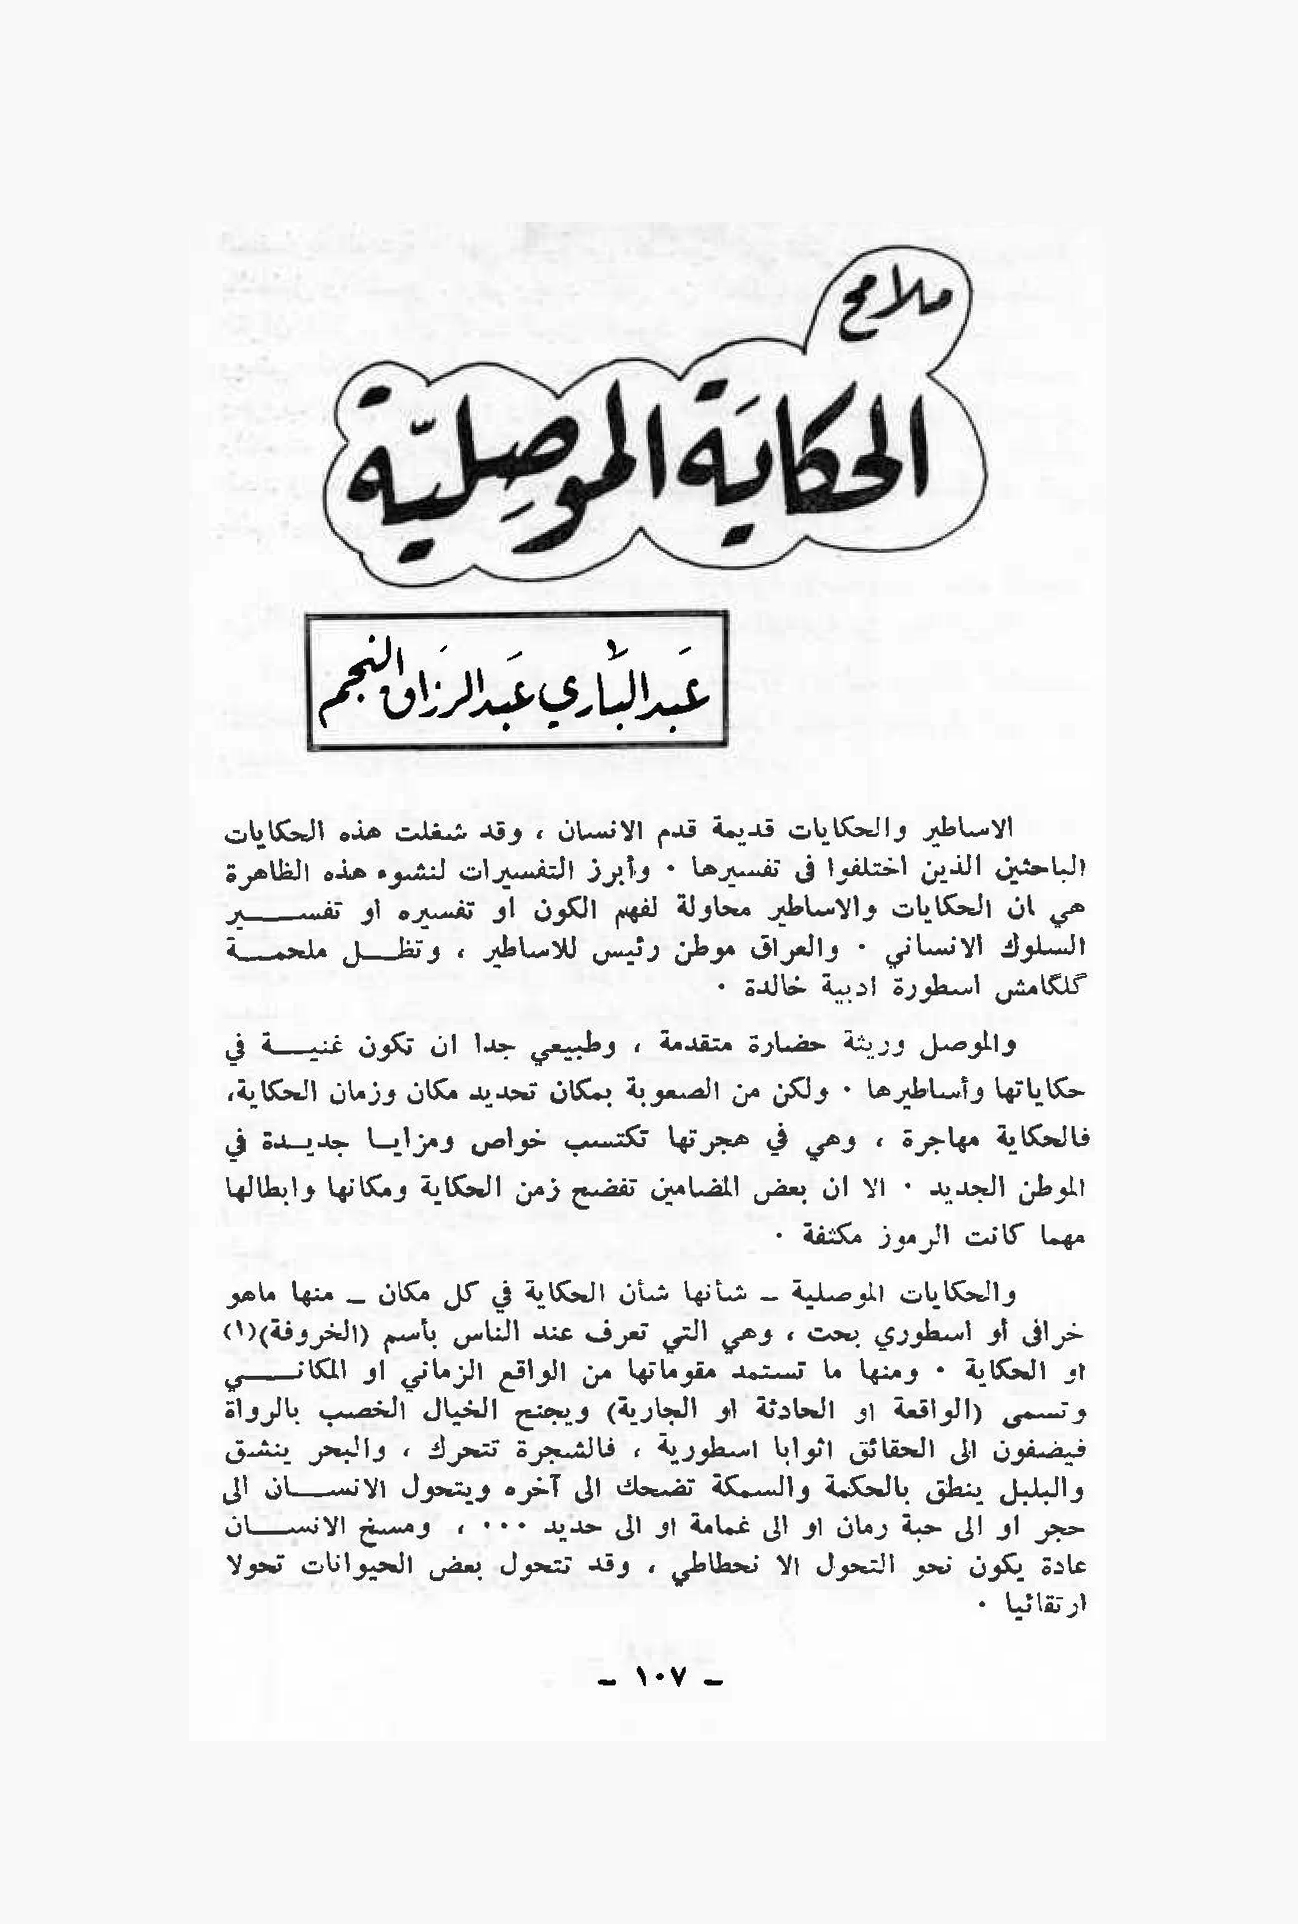 ملامح
الحكايَة الموصِليّة
عَبد البَاري عَبد الرزاق النجم
الاساطير والحكايات قديمة قدم الانسان ، وقد شغلت هذه الحكايات
الباحثين الذين اختلفوا فى تفسيرها ٠ وأبرز التفسيرات لنشوء هذه الظاهرة
هي ان الحكايات والاساطير محاولة لفهم الكون او تفسيره او تفســــير
السلوك الانساني ٠ والعراق موطن رئيس للاساطير ، وتظــل ملحمــة
گلگامش اسطورة ادبية خالدة ٠
والموصل وريثة حضارة متقدمة ، وطبيعي جدا ان تكون غنيــة في
حكاياتها وأساطيرها ٠ ولكن من الصعوبة بمكان تحديد مكان وزمان الحكاية،
فالحكاية مهاجرة ، وهي في هجرتها تكتسب خواص ومزايــا جديــدة في
الموطن الجديد ٠ الا ان بعض المضامين تفضح زمن الحكاية ومكانها وابطالها
مهما كانت الرموز مكثفة ٠
والحكايات الموصلية ــ شأنها شأن الحكاية في كل مكان ــ منها ماهو
خرافى أو اسطوري بحت ، وهي التي تعرف عند الناس بأسم (الخروفة)(١)
او الحكاية ٠ ومنها ما تستمد مقوماتها من الواقع الزماني او المكانــــي
وتسمى (الواقعة او الحادثة او الجارية) ويجنح الخيال الخصب بالرواة
فيضفون الى الحقائق اثوابا اسطورية ، فالشجرة تتحرك ، والبحر ينشق
والبلبل ينطق بالحكمة والسمكة تضحك الى آخره ويتحول الانســـان الى
حجر او الى حبة رمان او الى غمامة او الى حديد ٠٠٠ ، ومسخ الانســـان
عادة يكون نحو التحول الا نحطاطي ، وقد تتحول بعض الحيوانات تحولا
ارتقائيا ٠
ــ ١٠٧ ــ